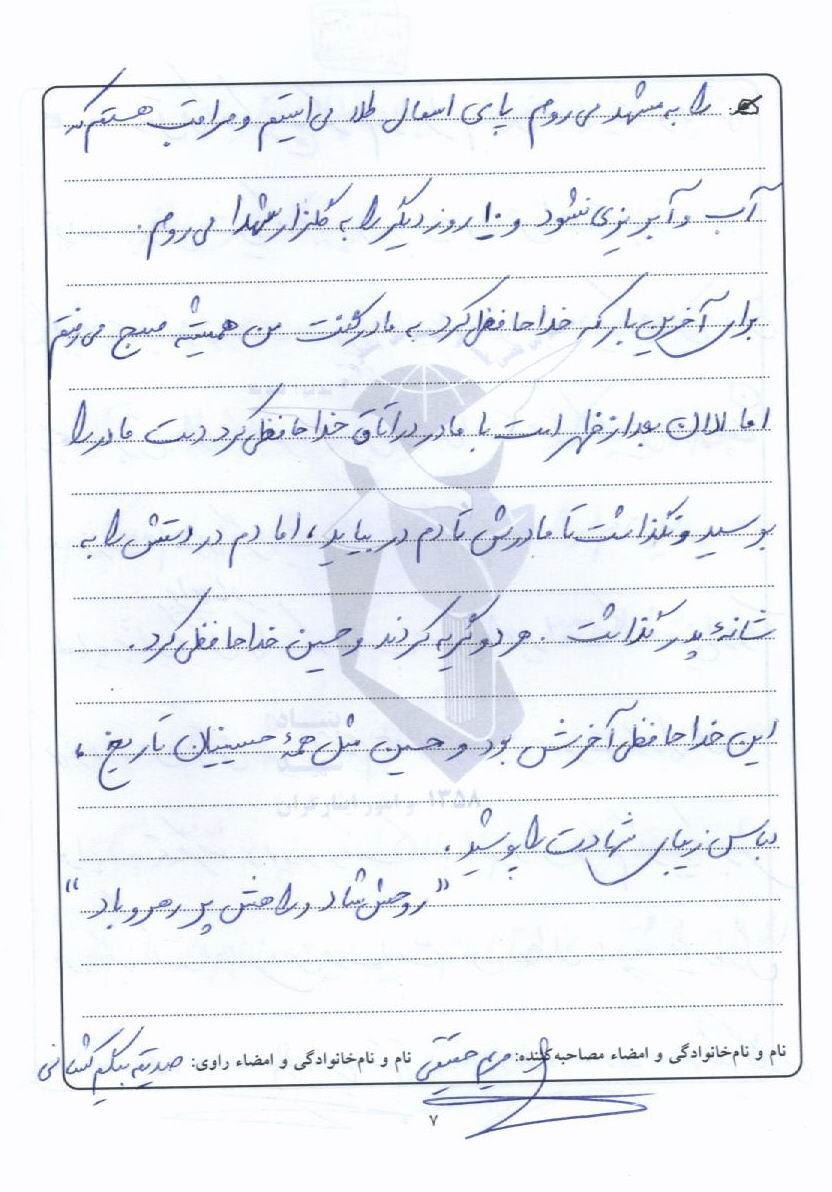 را به مشهد می روم پای اسمال طلا می ایستم و مراقب هستم که
آب و آبریزی نشود و ۱۰ روز دیگر را به گلزار شهدا می روم.
برای آخرین بار که خداحافظی کرد به مادر گفت من همیشه صبح می رفتم
اما الان بعد از ظهر است با مادر در اتاق خداحافظی کرد دست مادر را
بوسید و نگذاشت تا مادرش تا دم در بیاید، اما دم در دستش را به
شانهٔ پدر گذاشت. هر دو گریه کردند و حسین خداحافظی کرد.
این خداحافظی آخرش بود و حسین مثل همهٔ حسینیان تاریخ،
لباس زیبای شهادت را پوشید.
"روحش شاد و راهش پر رهرو باد"
نام و نام‌خانوادگی و امضاء مصاحبه‌کننده: مریم حقیقی نام و نام‌خانوادگی و امضاء راوی: صدیقه بیگم کشانی
۷